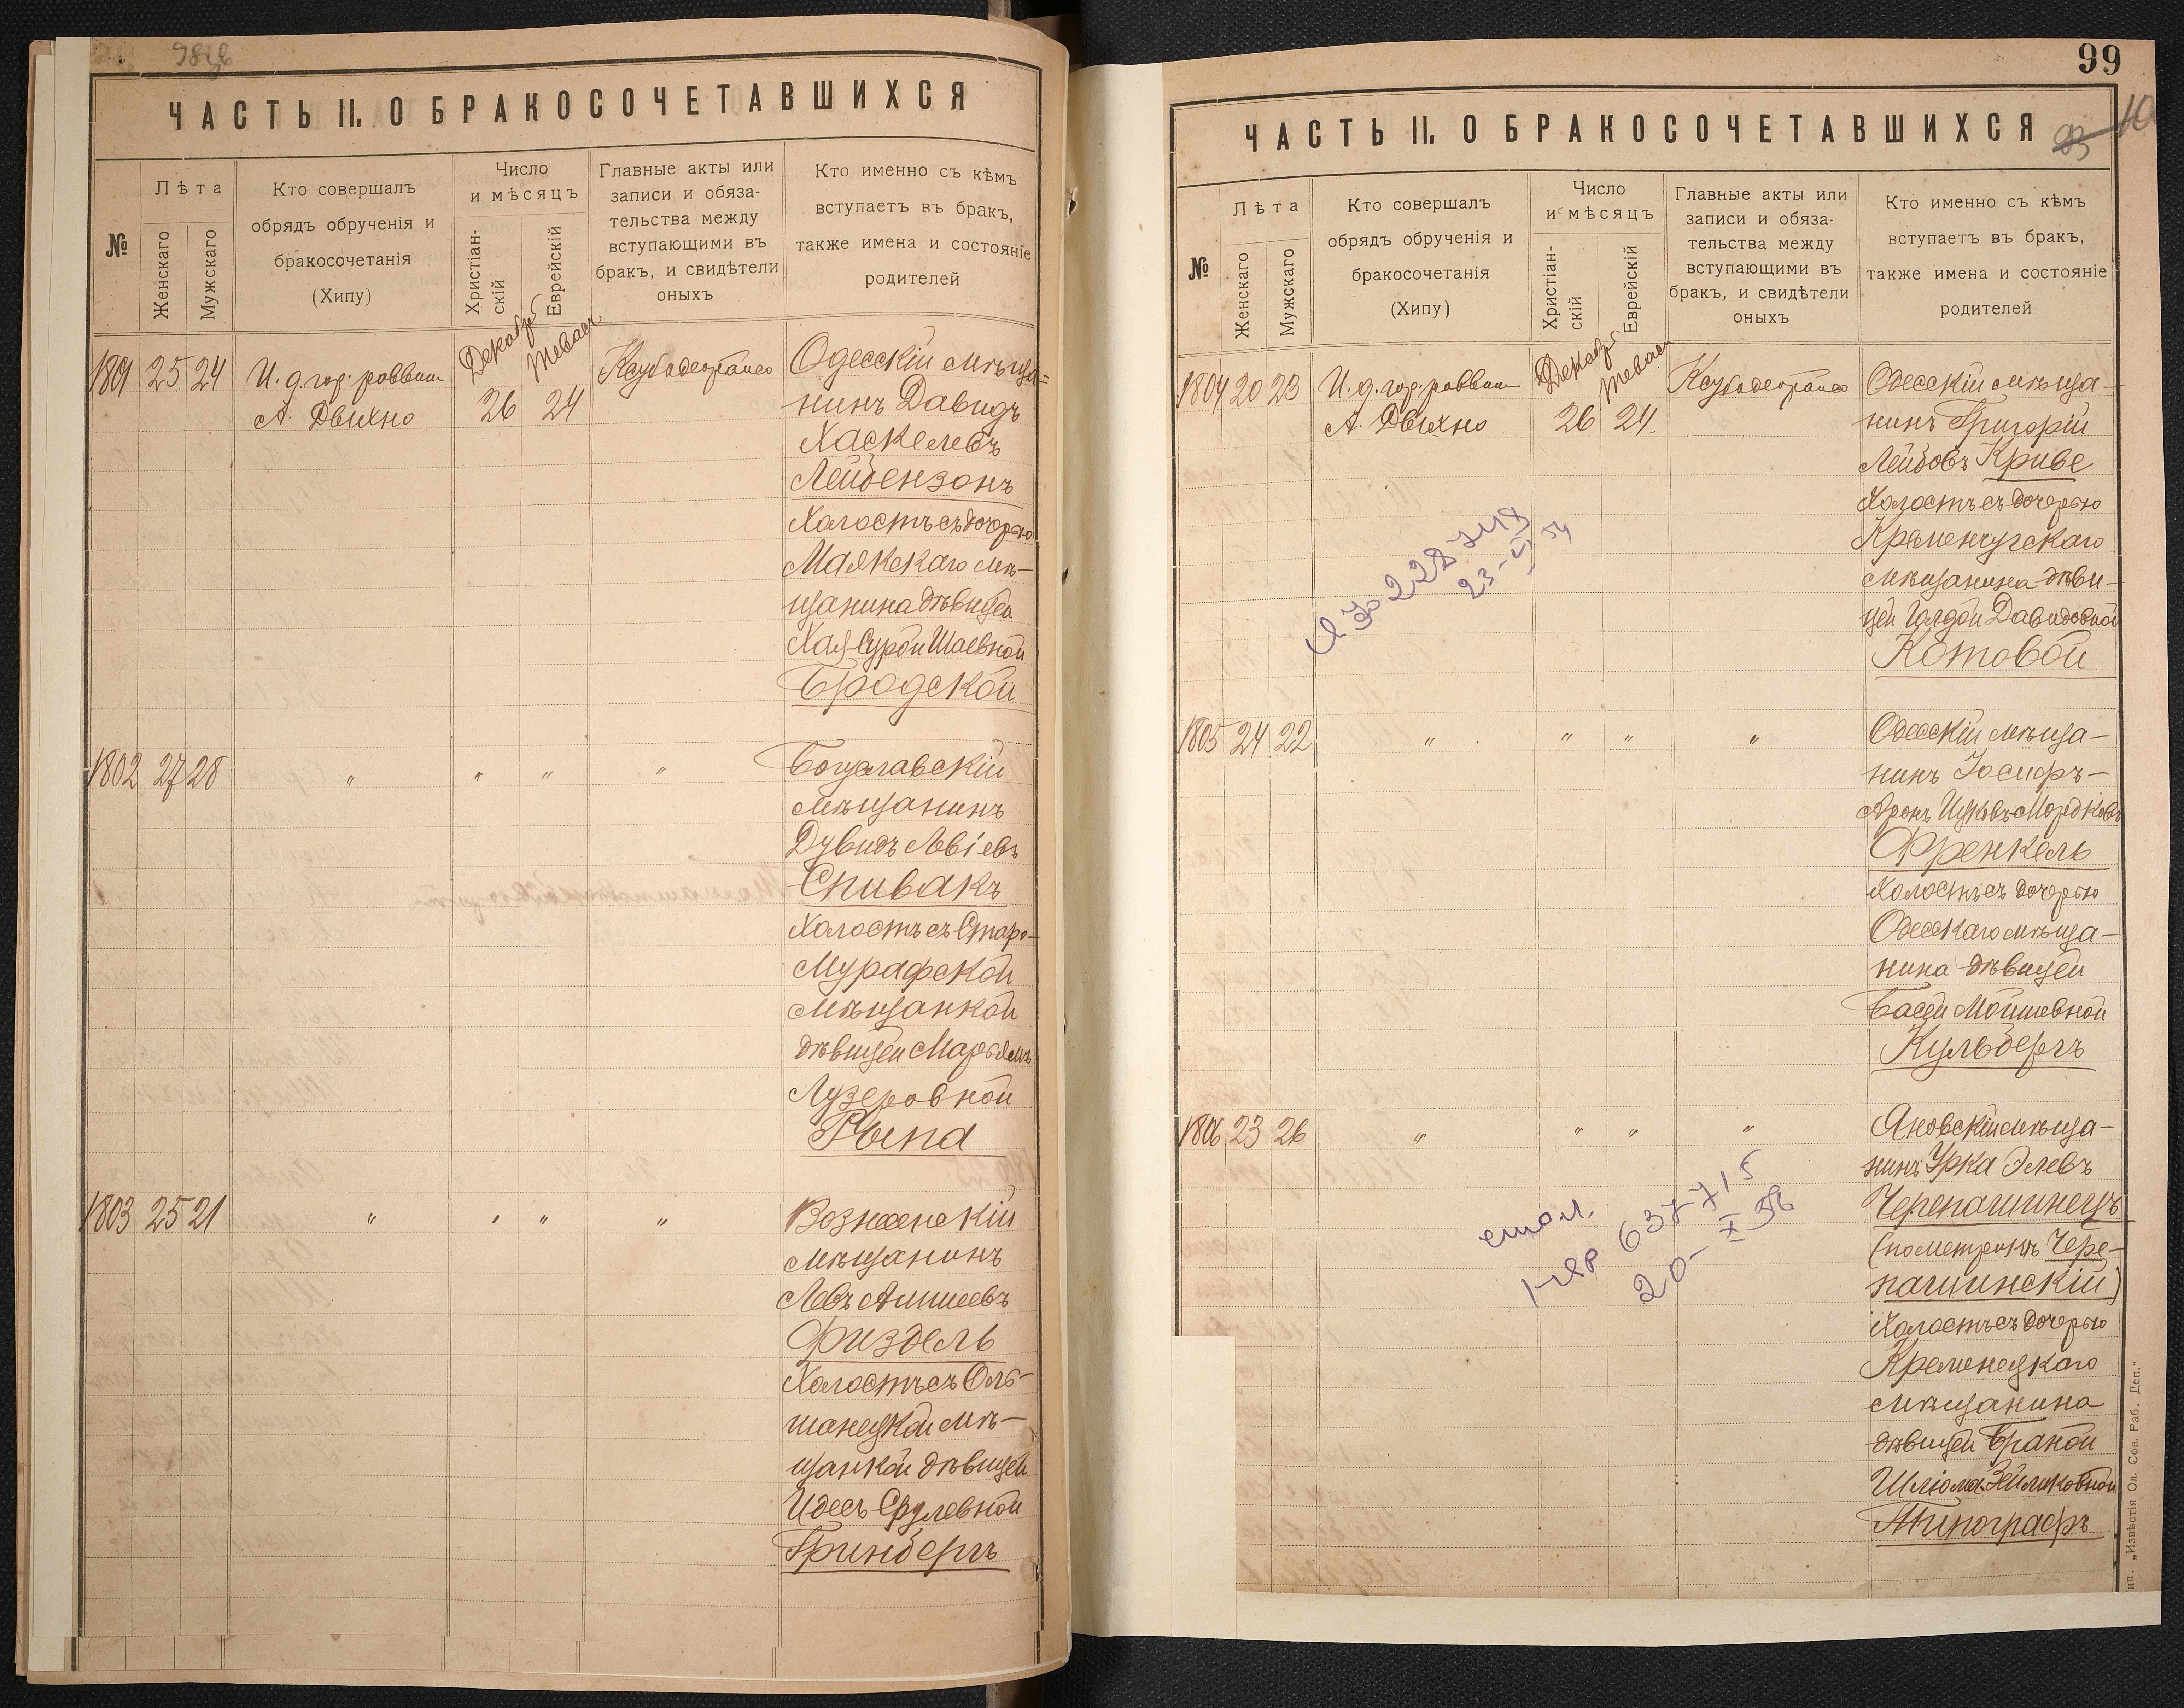 ЧАСТЬ II. О БРАКОСОЧЕТАВШИХСЯ
№
Лѣта
Женскаго
Мужскаго
Кто совершалъ
обрядъ обрученія и
бракосочетанія
(Хипу)
Число
и мѣсяцъ
Христіан-
скій
Еврейскій
Главные акты или
записи и обяза-
тельства между
вступающими въ
бракъ, и свидѣтели
оныхъ
Кто именно съ кѣмъ
вступаетъ въ бракъ,
также имена и состояніе
родителей
1801 25 24
И. д. гор. раввин
А. Двихно
Декабр
26
Тевас
24
Одесскій мѣща=
нинъ Давидъ
Хаскелевъ
Лейбензонъ
Холостъ съ дочерью
Маякскаго мѣ-
щанина дѣвицей
Хая-Сурой Шаевной
Бродской
1802 27 28 " " " "
Богуславскій
мѣщанинъ
Дувидъ Лвіевъ
Спивакъ
Холостъ съ Старо-
Мурафской
мѣщанкой
дѣвицей Марьямъ
Лузеровной
Рыпа
1803 25 21 " " " "
Вознесенскій
мѣщанинъ
Левъ
Физдель
Холостъ съ Оль-
шанецкой мѣ-
щанкой дѣвицей
Идесъ Срулевной
Гринбергъ
99
ЧАСТЬ II. О БРАКОСОЧЕТАВШИХСЯ
№
Лѣта
Женскаго
Мужскаго
Кто совершалъ
обрядъ обрученія и
бракосочетанія
(Хипу)
Число
и мѣсяцъ
Христіан-
скій
Еврейскій
Главные акты или
записи и обяза-
тельства между
вступающими въ
бракъ, и свидѣтели
оныхъ
Кто именно съ кѣмъ
вступаетъ въ бракъ,
также имена и состояніе
родителей
1804 20 23
И. д. гор. раввин
А. Двихно
Декабр
26
Тевас
24
Одесскій мѣща-
нинъ Григорій
Лейбовъ Криве
Холостъ съ дочерью
Кременчугскаго
мѣщанина дѣви-
цей Голдой Давидовной
Котовой
1805 24 22 " " " "
Одесскій мѣща-
нинъ Іосифъ-
Аронъ Ицковъ-Мордковъ
Френкель
Холостъ съ дочерью
Одесскаго мѣща-
нина дѣвицей
Басей Мойшевной
Кульбергъ
1806 23 26 " " " "
Яновскій мѣща-
нинъ Урка Элевъ
Черепашинецъ
(по метрикѣ Чере-
пашинскій)
Холостъ съ дочерью
Кременецкаго
мѣщанина
дѣвицей Браной
Шлiома-Зейликовной
Типографъ
637715
20-X 56
"Извѣстія Од. Сов. Раб. Деп."